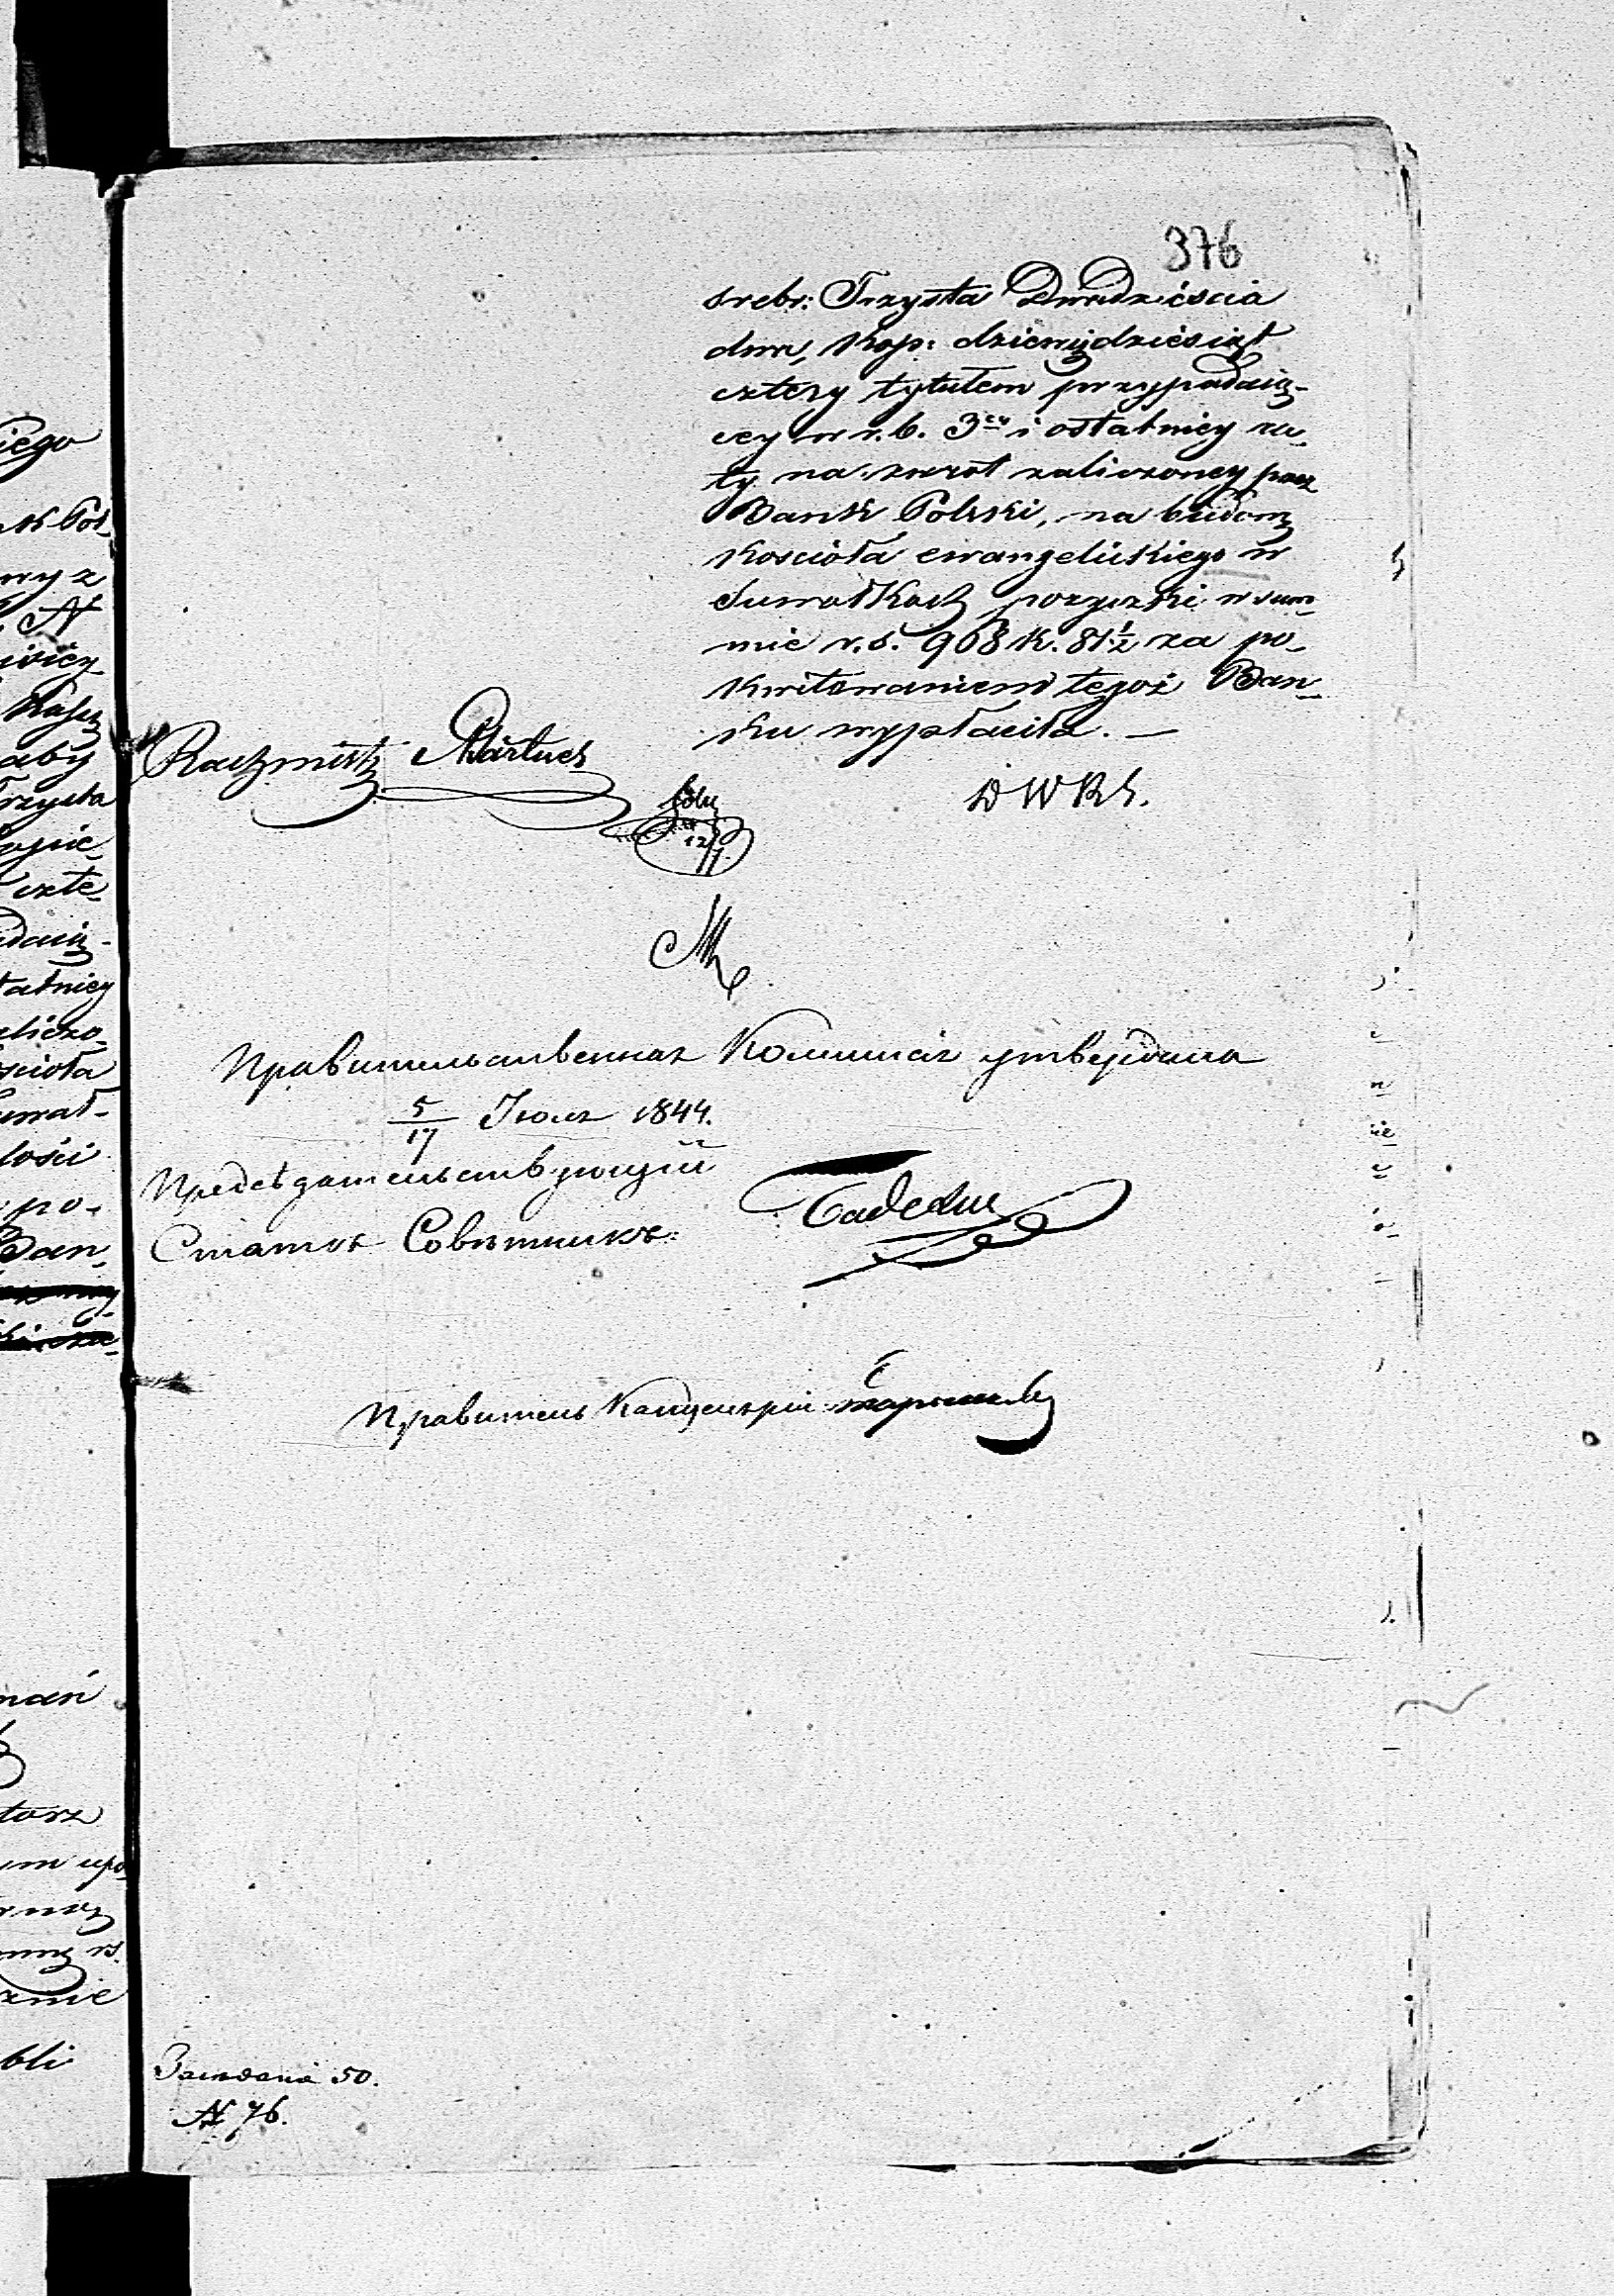 376
srebr: Trzysta Dwadzieścia
dwa, kop: dziewięćdziesiąt
cztery tytułem przypadaią-
cey w r. b. 3ey i ostatniey ra-
ty na zwrot zaliczoney przez
Bank Polski, na budowę
Kościoła ewangelickiego w
Suwałkach pożyczki w sum-
mie r. s. 968 k. 81½ za po-
kwitowaniem tegoż Ban-
ku wypłaciła. —
Rachmistrz
D W R S.
Правительственная Коммисія утвердила
5/17 Іюля 1844.
Предсѣдательствующій
Статск Совѣтникъ:
Правитель Канцеляріи
Засѣданіе 50.
№ 76.
iego
nk Pol-
wy z
№
aby
Trzysta
czte-
daią-
tatniey
liczo-
ścioła
uwał-
łości
po-
Ban-